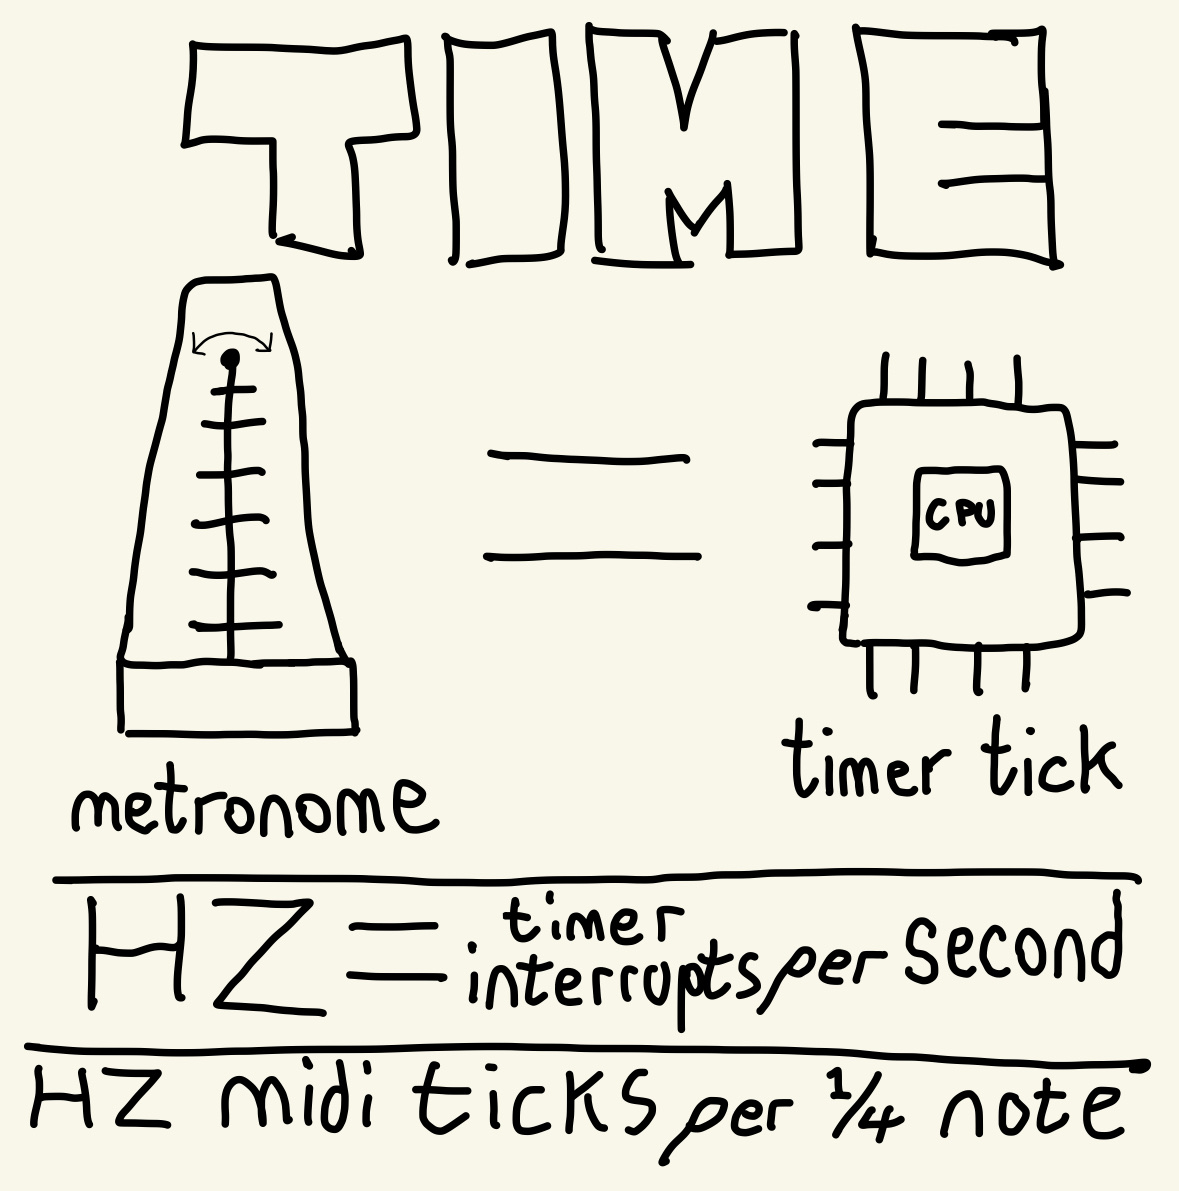 TIME
CPU
metronome
timer tick
HZ = timer interrupts per second
HZ midi ticks per 1/4 note